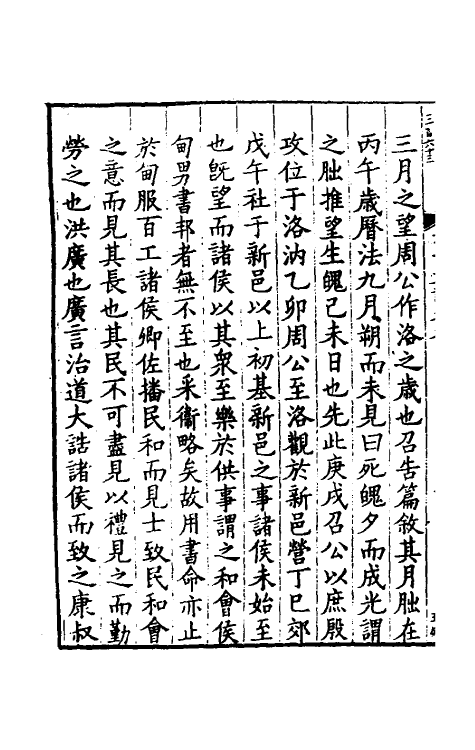 三月之望周公作洛之歳也召告篇敘其月朏在
丙午歳曆法九月朔而未見曰死魄夕而成光謂
之朏推望生魄己未日也先此庚戌召公以庶殷
攻位于洛汭乙卯周公至洛觀於新邑營丁巳郊
戊午社于新邑以上初基新邑之事諸侯未始至
也既望而諸侯以其衆至樂於供事謂之和會侯
甸男書邦者無不至也采衞略矣故用書命亦止
於甸服百工諸侯卿佐播民和而見士致民和會
之意而見其長也其民不可盡見以禮見之而勤
勞之也洪廣也廣言治道大誥諸侯而致之康叔